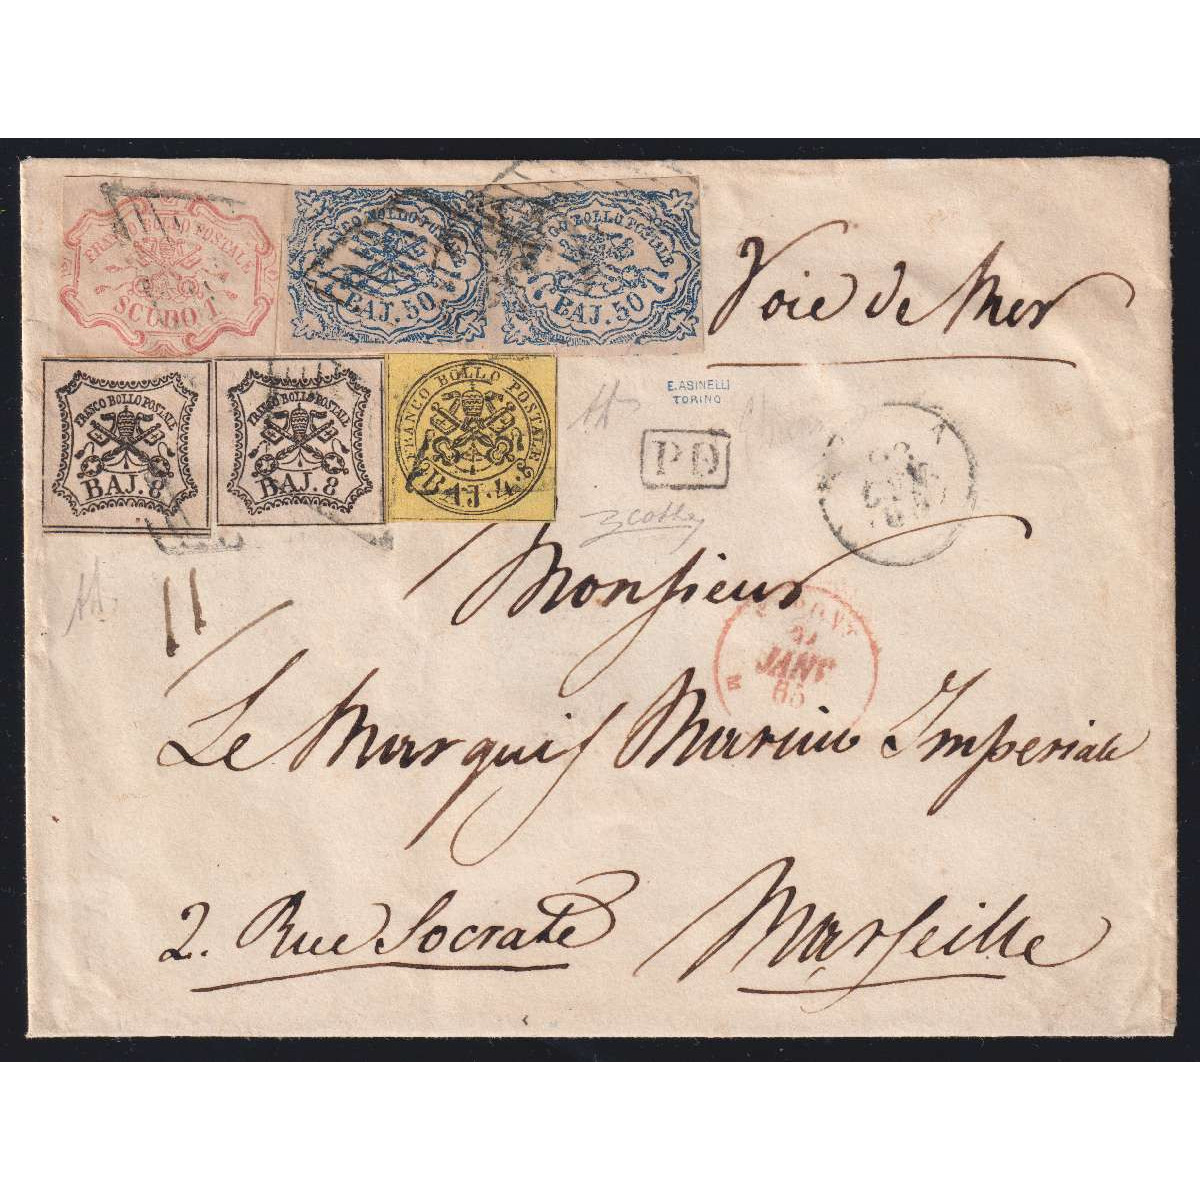 FRANCO BOLLO POSTALE
SCUDO 1
FRANCO BOLLO POSTALE
BAJ. 50
FRANCO BOLLO POSTALE
BAJ. 50
Voie de Mer
FRANCO BOLLO POSTALE
BAJ. 8
FRANCO BOLLO POSTALE
BAJ. 8
FRANCO BOLLO POSTALE
BAJ. 4.
E. ASINELLI
TORINO
PD
11
Monsieur
JANV
65
Le Marquis Marius Imperiale
2. Rue Socrate Marseille